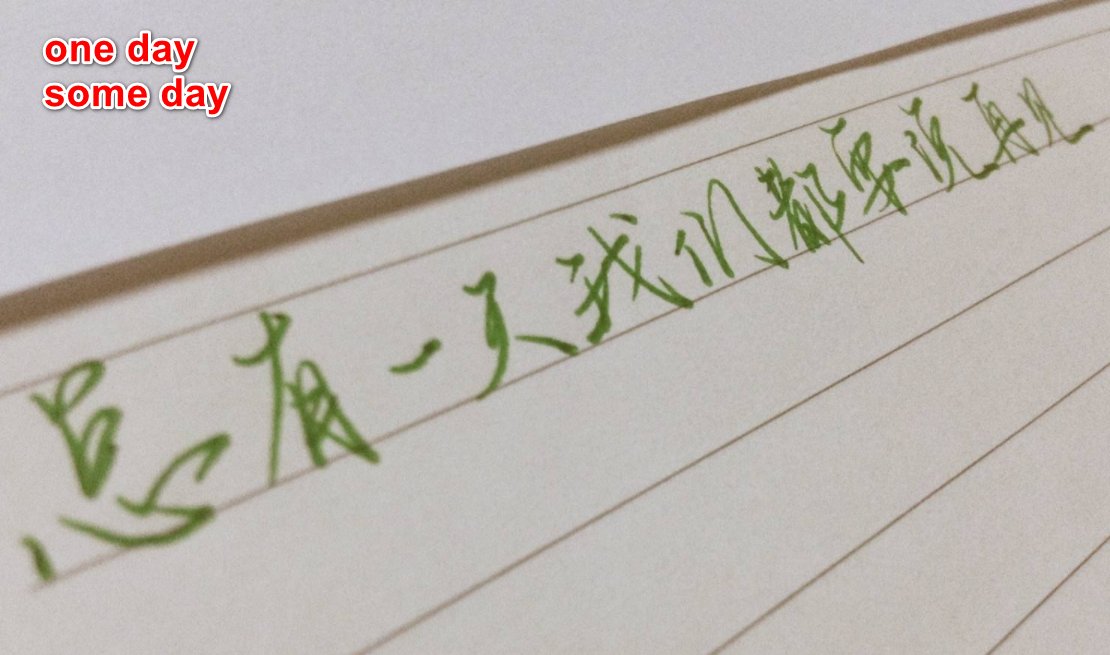 one day
some day
总有一天我们都要说再见